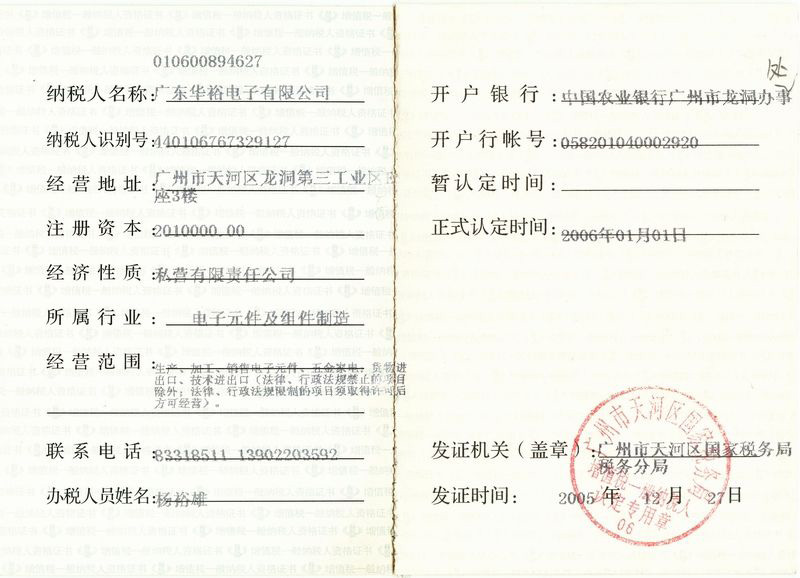 010600894627
纳税人名称:广东华裕电子有限公司
纳税人识别号:440106767329127
经营地址:广州市天河区龙洞第三工业区
座3楼
注册资本:2010000.00
经济性质:私营有限责任公司
所属行业:电子元件及组件制造
经营范围:生产、加工、销售电子元件、五金家电;货物进
出口、技术进出口(法律、行政法规禁止的项目
除外;法律、行政法规限制的项目须取得许可后
方可经营)。
联系电话:83318511 13902203592
办税人员姓名:杨裕雄
开户银行:中国农业银行广州市龙洞办事
处
开户行帐号:058201040002920
暂认定时间:
正式认定时间:2006年01月01日
发证机关(盖章):广州市天河区国家税务局
税务分局
发证时间: 2005 年 12 月 27日
广州市天河区国家税务局
增值税一般纳税人
认定专用章
06